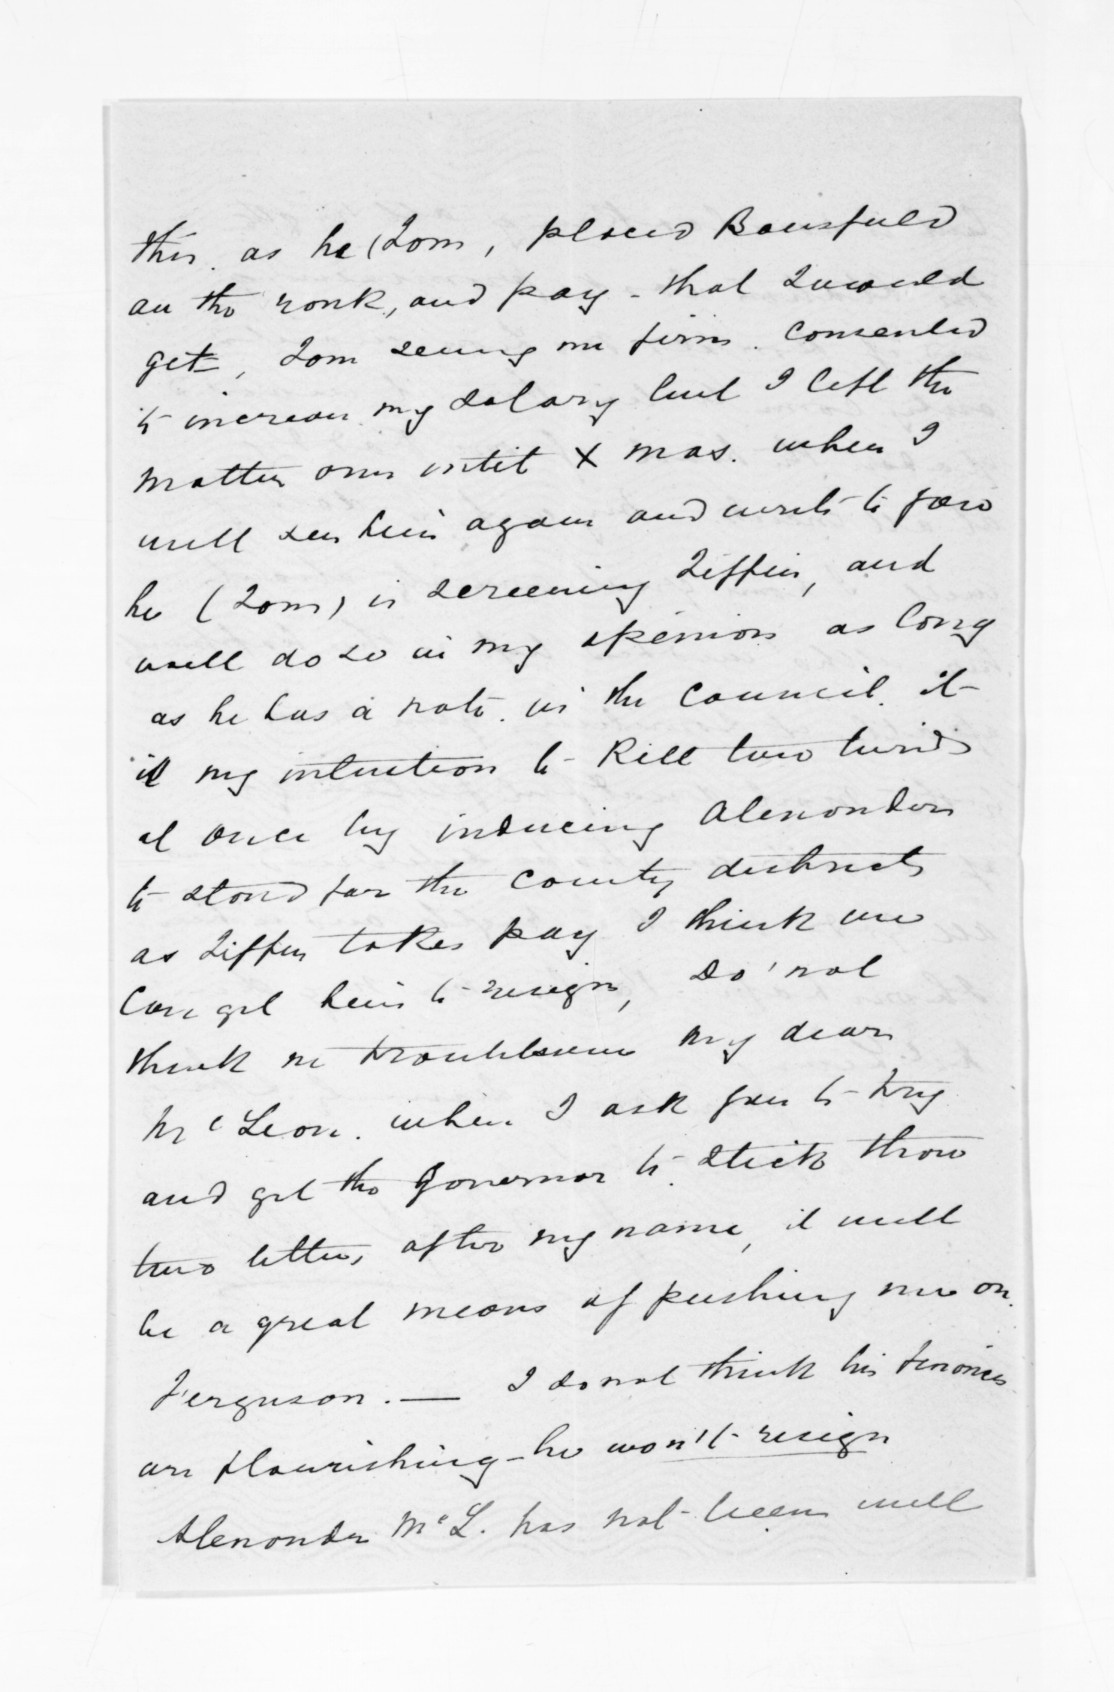 this. as he (Tom, placed Bousfield
on the rank, and pay - that I would
get, Tom seeing me firm. consented
to increase my salary but I left the
matter over until X mas. when I
will see him again and write to you
he (Tom) is screening Tiffen, and
will do so in my opinion as long
as he has a vote. in the Council. it
is my intention to - Kill two birds
at once by inducing Alexander
to stand for the County districts
as Tiffen takes pay I think we
Can get him to resign, Do'not
think me troublesome my dear
McLean. when I ask you to try
and get the Governor to. stick those
two letters after my name, it will
be a great means of pushing me on.
Ferguson. — I do not think his finances
are flourishing - he won't resign
Alexander McL. has not been well